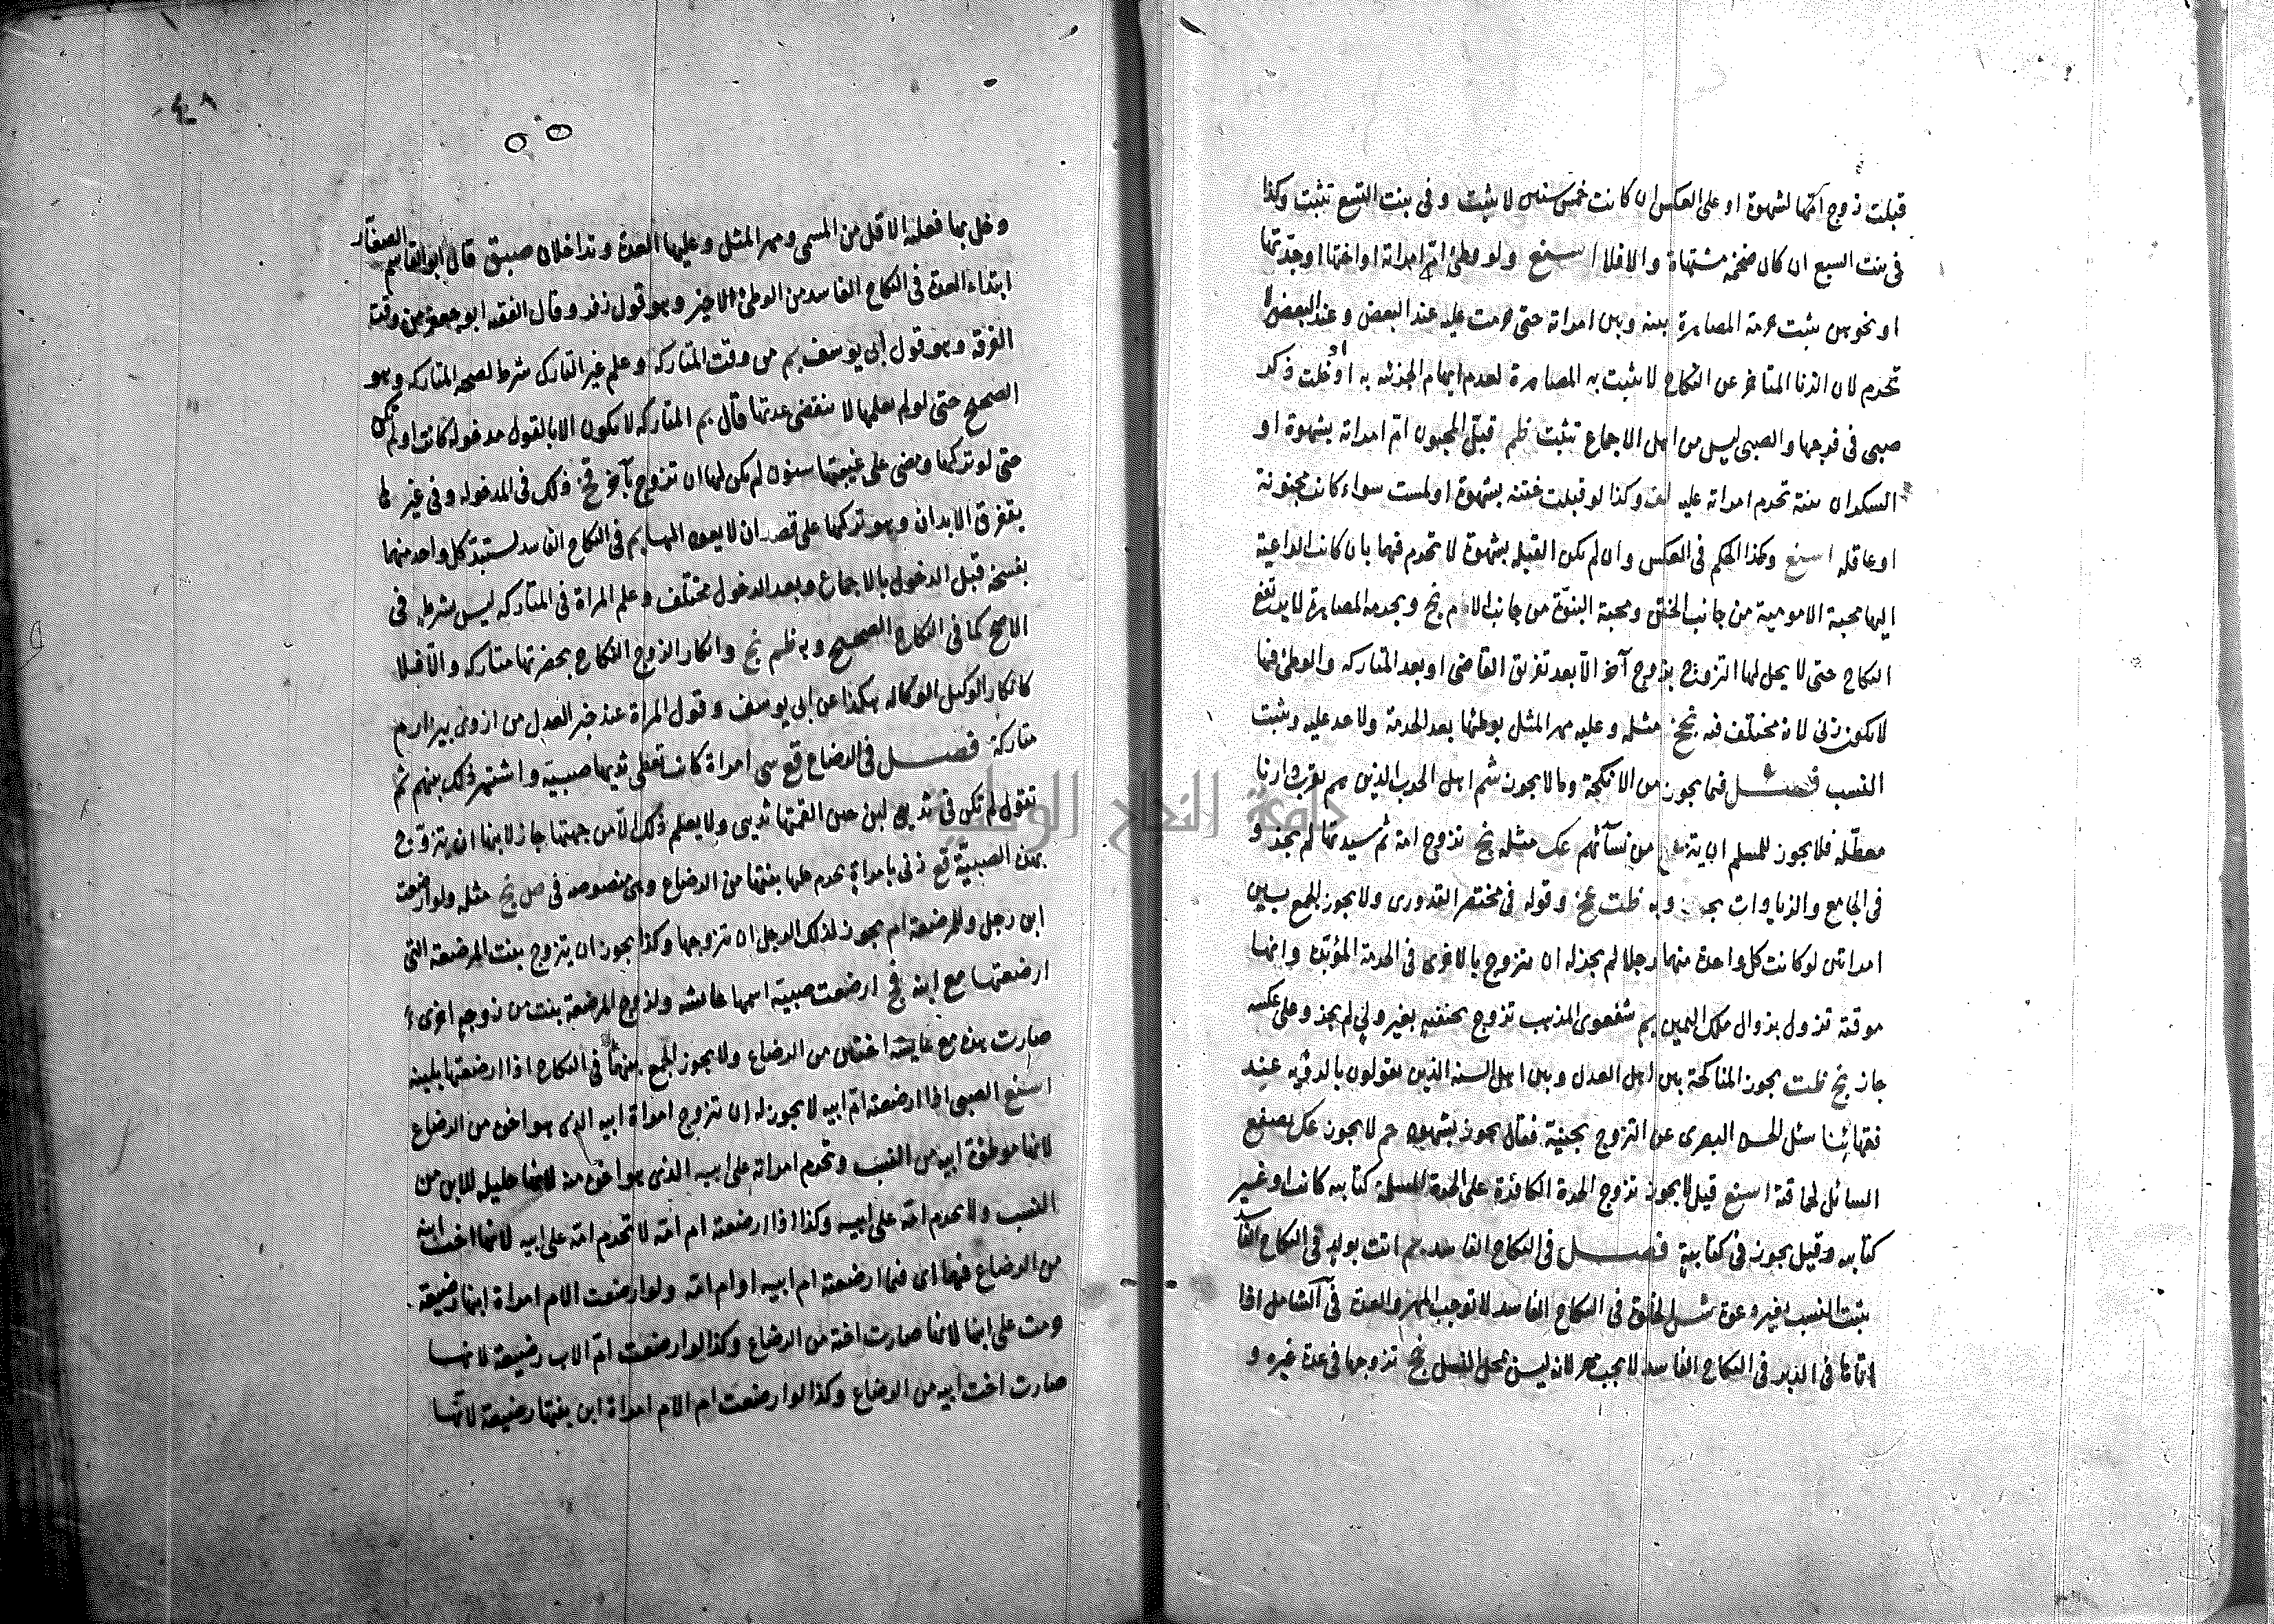 قبلت زوج امّها لشهوة او على العكس ان كانت خمس سنين لا يثبت وفى بنت التسع تثبت وكذا
فى بنت السبع ان كان ضخمة مشتهاة والا فلا اسنع ولو وطئ امّ امراته او اختها او جدّتها
او نحوهن يثبت حرمة المصاهرة بينه وبين امراته حتى حرمت عليه عند البعض وعند البعض لا
تحرم لان الزنا المتاخر عن النكاح لا يثبت به المصاهرة لعدم ايهام الجزئيه به او ادخلت ذكر
صبى فى فرجها والصبى ليس من اهل الاجماع تثبت ظم قبّل المجبون امّ امراته بشهوة او
السكران بنته تحرم امراته عليه وكذا لو قبلت ختنه بشهوة او لمست سواء كانت مجنونة
او عاقله اسنع وكذا الحكم فى العكس وان لم تكن القبله بشهوة لا تحرم فيما بان كانت الداعية
اليها محبة الامومية من جانب الختن ومحبة البنوّة من جانب الام نج وبحرمة المصاهرة لا يرتفع
النكاح حتى لا يحل لها التزوج بزوج آخر الّا بعد تفريق القاضى او بعد المتاركه والوطئ فيها
لا يكون زنى لانه مختلف فيه نج مثله وعليه مهر المثل بوطئها بعد الحرمة ولا حد عليه ويثبت
النسب فصــل فيما يجوز من الانكحة وما لا يجوز شم اهل الحرب الذين هم بقرب دارنا
معطّله فلا يجوز للمسلم ان يتزوج من نسآئهم عك مثله نج تزوج امة ثم سيدتها لم يجز و
فى الجامع والزيادات يجوز وبه ظت نج وقوله فى مختصر القدورى ولا يجوز للجمع بين
امراتين لو كانت كل واحدة منهما رجلا لم يجز له ان يتزوج بالاخرى فى الحرمة المؤبّدة وانها
موقتة تزول بزوال ملك اليمين بم شفعوى المذهب تزوج بحنفيه بغير ولي لم يجز وعلى عكسه
جاز نج ظت يجوز المناكحة بين اهل العدل وبين اهل السنه الذين يقولون بالرؤيه عند
فقهائنا سئل الحسن البصرى عن التزوج بجنية فقال يجوز بشهود حم لا يجوز عك يصفع
السائل لحماقته اسنع قيل لا يجوز تزوج الحرة الكافرة على الحرة المسلمة كتابيه كانت او غير
كتابيه وقيل يجوز فى كتابية فصــل فى النكاح الفاسد حم اتت بولد فى النكاح الفاسد
يثبت النسب بغير دعوة شــل الخلوة فى النكاح الفاسد لا توجب المهر والعدة فى الشامل اذا
اتاها فى الدبر فى النكاح الفاسد لا يجب مهر لانه ليس بمحل النسل نج تزوجها فى عدة غيره و
دخل بها فعليه الاقل من المسمى ومهر المثل وعليها العدة وتداخلان صبق قال ابو القاسم الصفّار
ابتداء العدة فى النكاح الفاسد من الوطئ الاخير وهو قول زفر وقال الفقيه ابو جعفر من وقت
الفرقه وهو قول ابى يوسف بم من وقت المتاركه وعلم غير التارك شرط لصحه المتاركه وهو
الصحيح حتى لو لم يعلمها لا ينقضى عدتها قال بم المتاركه لا يكون الا بالقول مدخولة كانت او لم تكن
حتى لو تركها ومضى على غيبتها سنون لم يكن لها ان تتزوج بآخر قج ذلك فى المدخوله وفى غير لها
يتفرق الابدان وهو تركها على قصد ان لا يعود اليها بم فى النكاح الفاسد لستبدّ كل واحد منهما
بفسخه قبل الدخول بالاجماع وبعد الدخول مختلف وعلم المراة فى المتاركه ليس بشرط فى
الاصح كما فى النكاح الصحيح وبه ظم نج وانكار الزوج النكاح بحضرتها متاركه والّا فلا
كانكار الوكيل الوكاله هكذا عن ابى يوسف وقول المراة عند خبر العدل من ازوى بيزارم
متاركة فصــل فى الرضاع قع سى امراة كانت تعطى ثديها صبيّة واشتهر ذلك بينهم ثم
تقول لم تكن فى ثديى لبن حين القمتها ثديى ولا يعلم ذلك الّا من جهتها جاز لابنها ان يتزوج
بهذه الصبيّة قع زنى بامراة يحرم عليها بنتها من الرضاع وهى منصوصه فى صل نج مثله ولو ارضعت
ابن رجل وللمرضعة ام يجوز لذلك الرجل ان تزوجها وكذا يجوز ان يتزوج بنت المرضعة التى
ارضعتها مع ابنه قج ارضعت صبيّة اسمها عايشه ولزوج المرضعة بنت من زوجه اخرى
صارت هذه مع عايشه اختين من الرضاع ولا يجوز الجمع بينهما فى النكاح اذا ارضعتها بلبنه
اسنع الصبى اذا ارضعته امّ ابيه لا يجوز له ان تزوج امراة ابيه الذى هو اخوه من الرضاع
لانها موطؤة ابيه من النسب وتحرم امراته على ابيه الذى هو اخوه منه لانها حليلة للابن من
النسب ولا يحرم امّه على ابيه وكذا اذا ارضعته ام امّه لا تحرم امّه على ابيه لانها اخت ابنه
من الرضاع فيها اى فيما ارضعته ام ابيه او ام امّه ولو ارضعت الام امراة ابنها رضيعة
حرمت على ابنها لانها صارت اخته من الرضاع وكذا لو ارضعت امّ الاب رضيعة لانها
صارت اخت ابيه من الرضاع وكذا لو ارضعت ام الام امراة ابن بنتها رضيعة لانّها
٤٨
٥٥
جامعة النجاح الوطنية